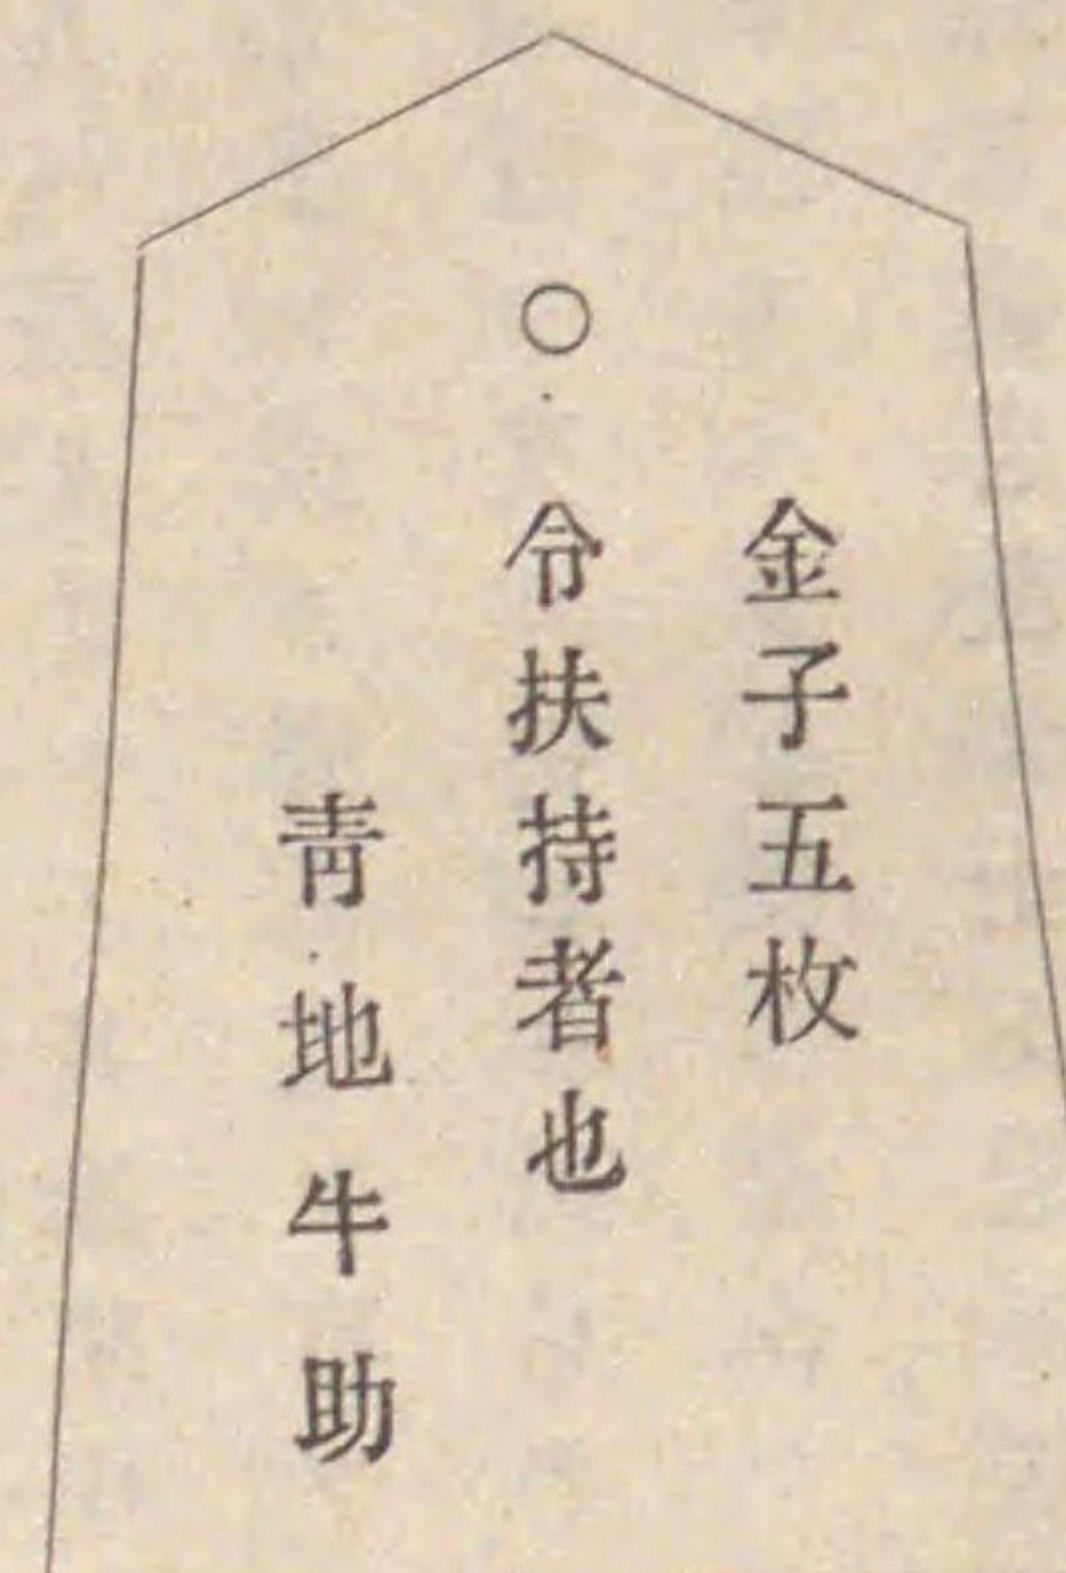 金子五枚
○令扶持者也
靑地牛助